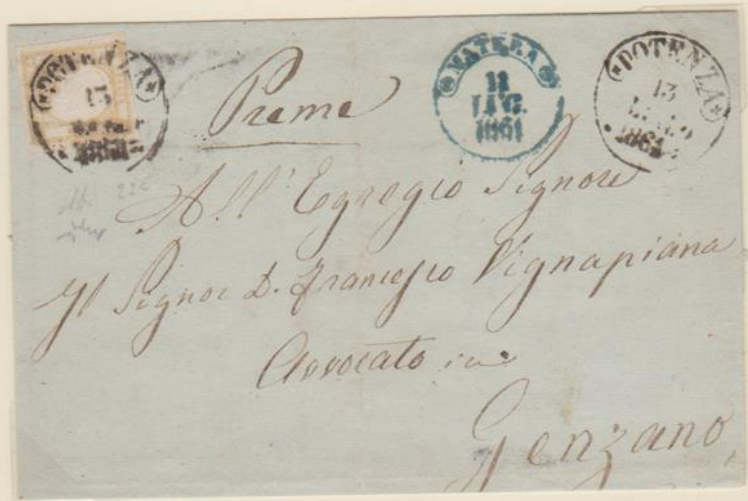 POTENZA
13
1861
MATERA
11
1861
POTENZA
13
LUG.º
1861
Preme
22c
All'Egregio Signore
Il Signor D. Francesco Vignapiana
Avvocato in
Genzano